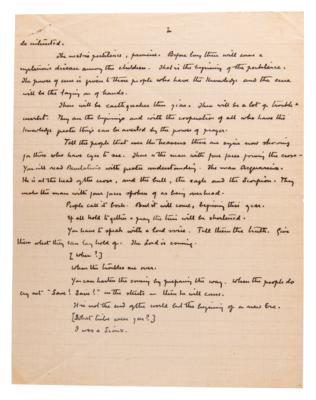 2
be intended.
The west is pestilence, famine. Before long there will come a
mysterious disease among the children. That is the beginning of the pestilence.
The power of cure is given to those people who have the knowledge and the cure
will be the laying on of hands.
There will be earthquakes this year. There will be a lot of trouble &
unrest. They are the beginnings and with the cooperation of all who have this
knowledge greater things can be averted by the power of prayer.
Tell the people that over the there are signs now showing
for those who have eyes to see. There is the man with four faces facing the cross —
You will read Revelations with greater understanding. The man Aquarius.
He is at the head of the cross, and the bull, the eagle and the Scorpion. They
make the man with four faces spoken of as being overhead.
People call it bosh. But it will come, beginning this year.
If all hold together & pray the time will be shortened.
You have to speak with a loud voice. Tell them the truth. Give
them what they can lay hold of. The Lord is coming.
[When?]
When the troubles are over.
You can hasten the coming by preparing the way. When the people do
cry out "Save! Save!" in the streets then he will come.
It is not the end of the world but the beginning of a new Era.
[What tribe were you?]
I was a Sioux.